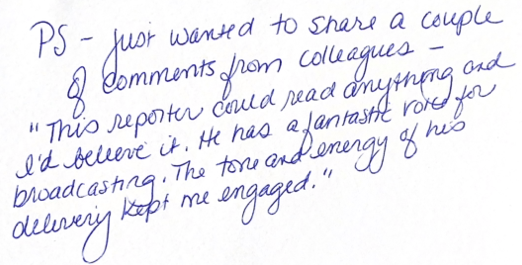 PS - just wanted to share a couple
of comments from colleagues -
"This reporter could read anything and
I'd believe it. He has a fantastic voice for
broadcasting. The tone and energy of his
delivery kept me engaged."